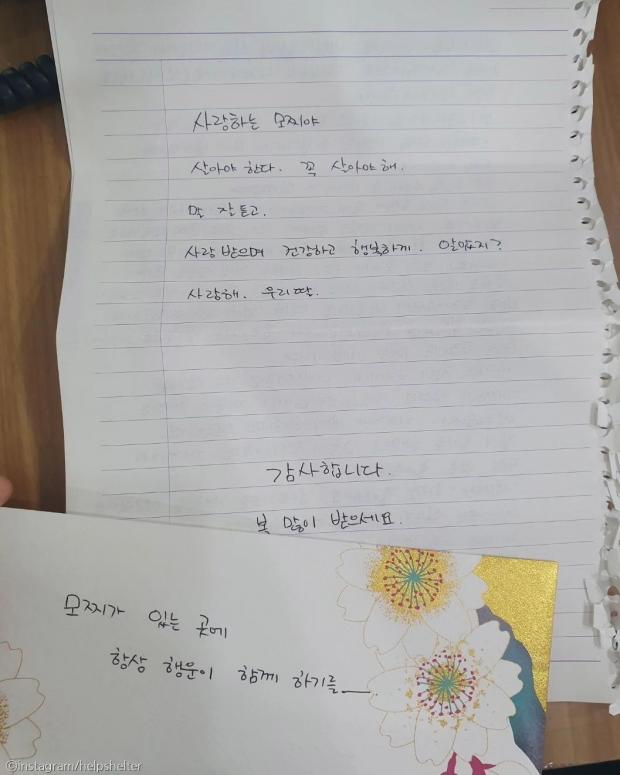 사랑하는 모찌야
살아야 한다. 꼭 살아야 해.
말 잘 듣고.
사랑 받으며 건강하고 행복하게. 알았지?
사랑해. 우리딸.
감사합니다.
복 많이 받으세요.
모찌가 있는 곳에
항상 행운이 함께 하기를__
©instagram/helpshelter